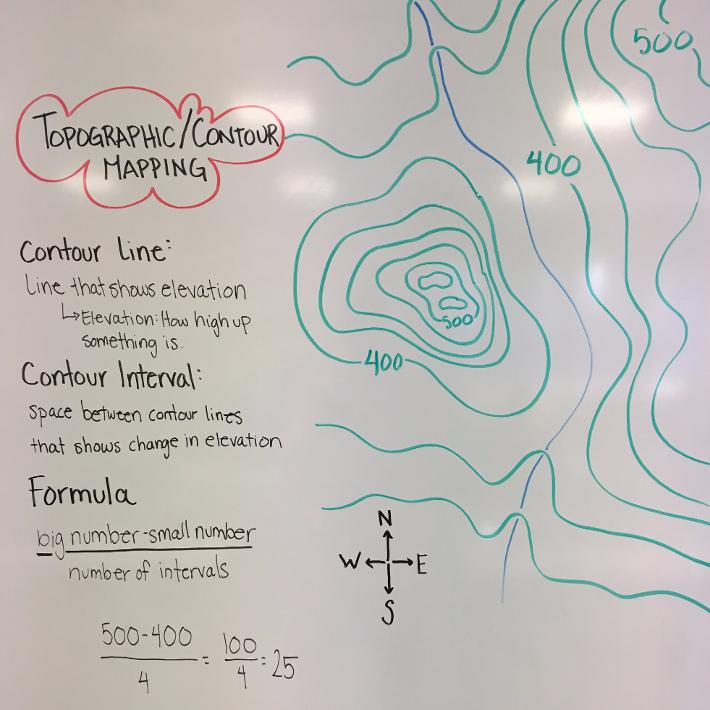 TOPOGRAPHIC/CONTOUR
MAPPING
Contour Line:
Line that shows elevation
↳Elevation: How high up
something is.
Contour Interval:
space between contour lines
that shows change in elevation
Formula
big number-small number
number of intervals
500-400
4
=
100
4
=25
500
400
500
400
N
W E
S